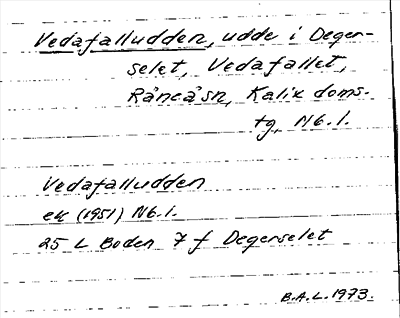 Vedafalludden, udde i Deger-
selet, Vedafallet,
Råneåsn, Kalix doms-
tg, Nb.l.
Vedafalludden
ek (1951) Nb.l.
25 L Boden 7 f Degerselet
B.A.L. 1973.